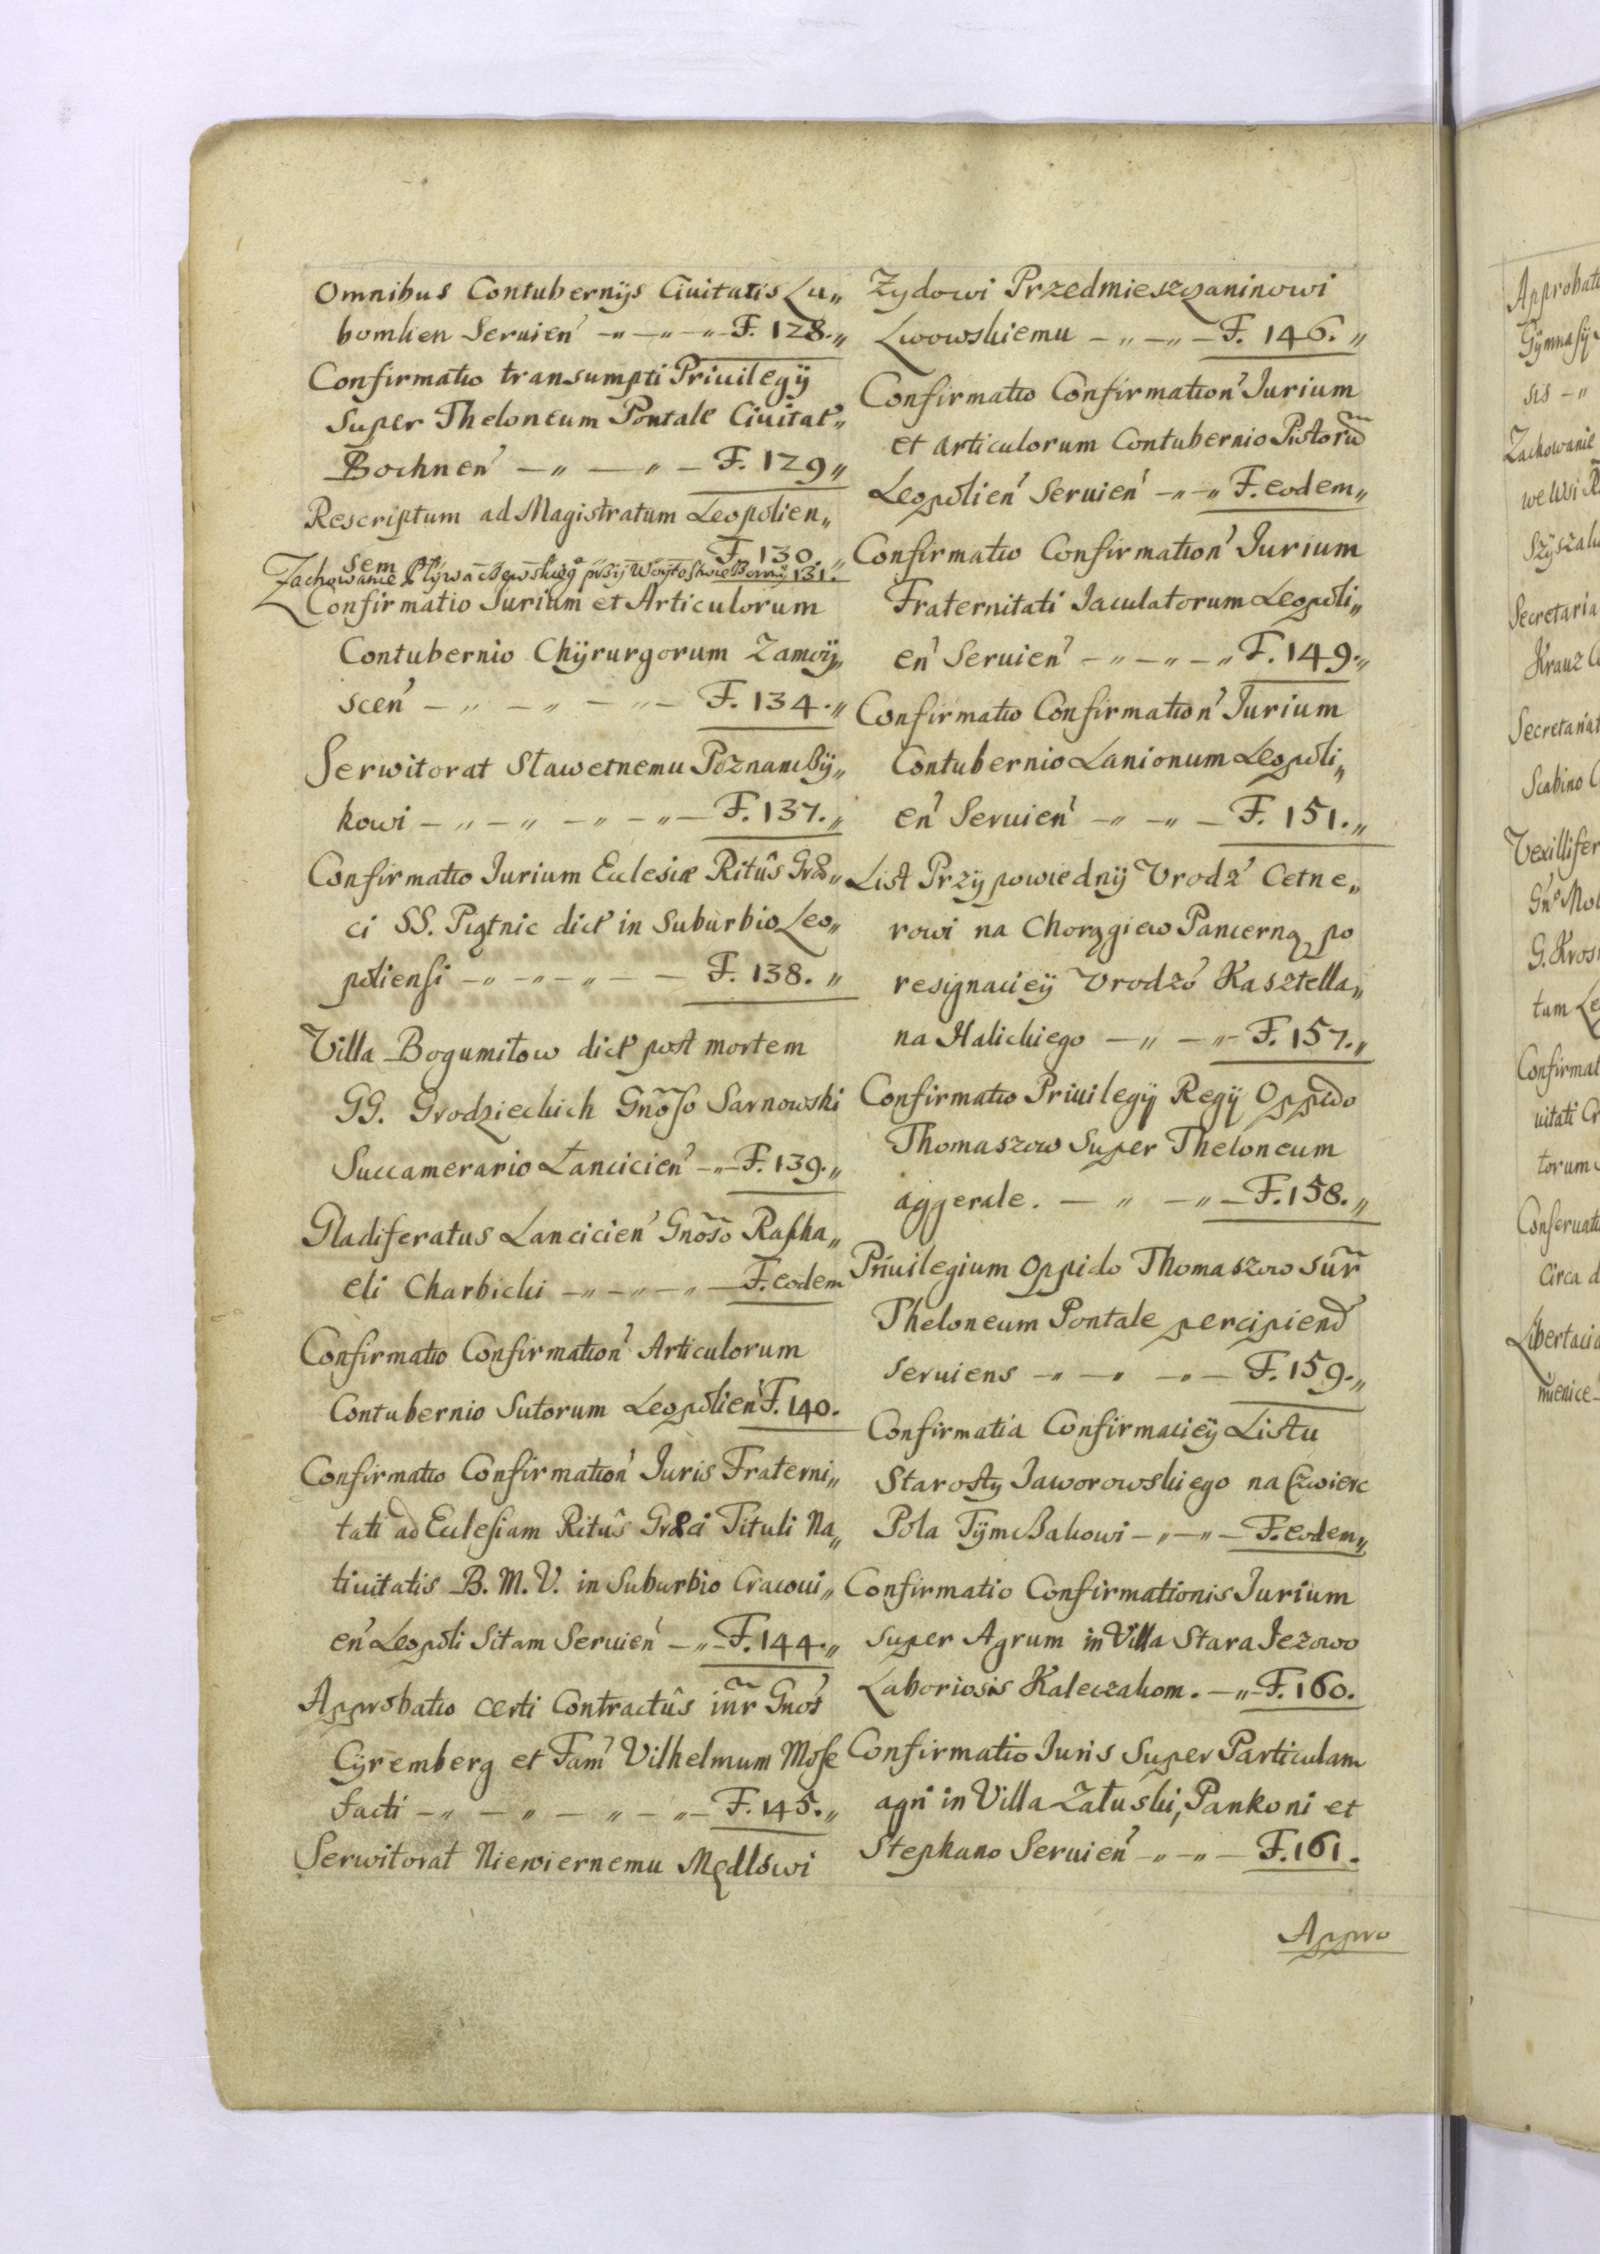 Omnibus Contubernijs Ciuitatis Lu„
bomlien Seruien' —„—„—„— F. 128.„
Confirmatio transumpti Priuilegij
Super Theloneum Pontale Ciuitat'„
Bochnen' —„—„— F. 129„
Rescriptum ad Magistratum Leopolien„
sem F. 130.„
Zachowanie przy Woytostwie 131.
Confirmatio Iurium et Articulorum
Contubernio Chÿrurgorum Zamoÿ„
scen' —„—„—„— F. 134.„
Serwitorat Sławetnemu Poznanczÿ„
kowi —„—„—„—„— F. 137.„
Confirmatio Iurium Ecclesiæ Ritûs Græ„
ci SS. Piątnic dict in Suburbio Leo„
poliensi —„—„—„—— F. 138.„
Villa Bogumiłow dict post mortem
GG. Grodzieckich Gnõso Sarnowski
Succamerario Lancicien' —„— F. 139.„
Gladiferatus Lancicien' Gnõso Rapha„
eli Charbicki —„—„—„— F. eodem
Confirmatio Confirmation' Articulorum
Contubernio Sutorum Leopolien' F. 140.
Confirmatio Confirmation' Iuris Fraterni„
tati ad Ecclesiam Ritûs Græci Tituli Na„
tiuitatis B. M. V. in Suburbio Cracoui„
en' Leopoli Sitam Seruien' —„— F. 144.„
Approbatio certi Contractûs inr̃ Gnos'
Cÿremberg et Fam' Vilhelmum Mose
facti —„—„—„—„— F. 145.„
Serwitorat Niewiernemu Mędlowi
Zydowi Przedmieszczaninowi
Lwowskiemu —„—„— F. 146.„
Confirmatio Confirmation' Iurium
et articulorum Contubernio Pistorũ
Leopolien' Seruien' —„—„ F. eodem„
Confirmatio Confirmation' Iurium
Fraternitati Iaculatorum Leopoli„
en' Seruien' —„—„—„ F. 149.„
Confirmatio Confirmation' Iurium
Contubernio Lanionum Leopoli„
en' Seruien' —„—„— F. 151.„
List Przÿpowiednÿ Vrodz' Cetne„
rowi na Chorągiew Pancerną po
resignacieÿ Vrodzo' Kasztella„
na Halickiego —„—„— F. 157.„
Confirmatio Priuilegij Regij Oppido
Thomaszow Super Theloneum
aggerale. —„—„— F. 158.„
Priuilegium Oppido Thomaszow sur̃
Theloneum Pontale percipiend'
seruiens —„—„—„— F. 159.„
Confirmatia Confirmacieÿ Listu
Starosty Iaworowskiego na Czwierc
Pola Tÿmczakowi —„—„— F. eodem„
Confirmatio Confirmationis Iurium
super Agrum in Villa Stara Jezowo
Laboriosis Kaleczakom. —„— F. 160.
Confirmatio Iuris Super Particulam
agri in Villa Załuski, Pankoni et
Stephano Seruien' —„—„— F. 161.
Appro
Approbati
Gÿmnasij
sis —„
Zachowanie
we Wsi
Secretaria
Kranz
Secretariat
Scabino
Vexillifer
G. Kros
tum Le
Confirmat
uitati
torum
Conseruati
Circa d
Libertacia